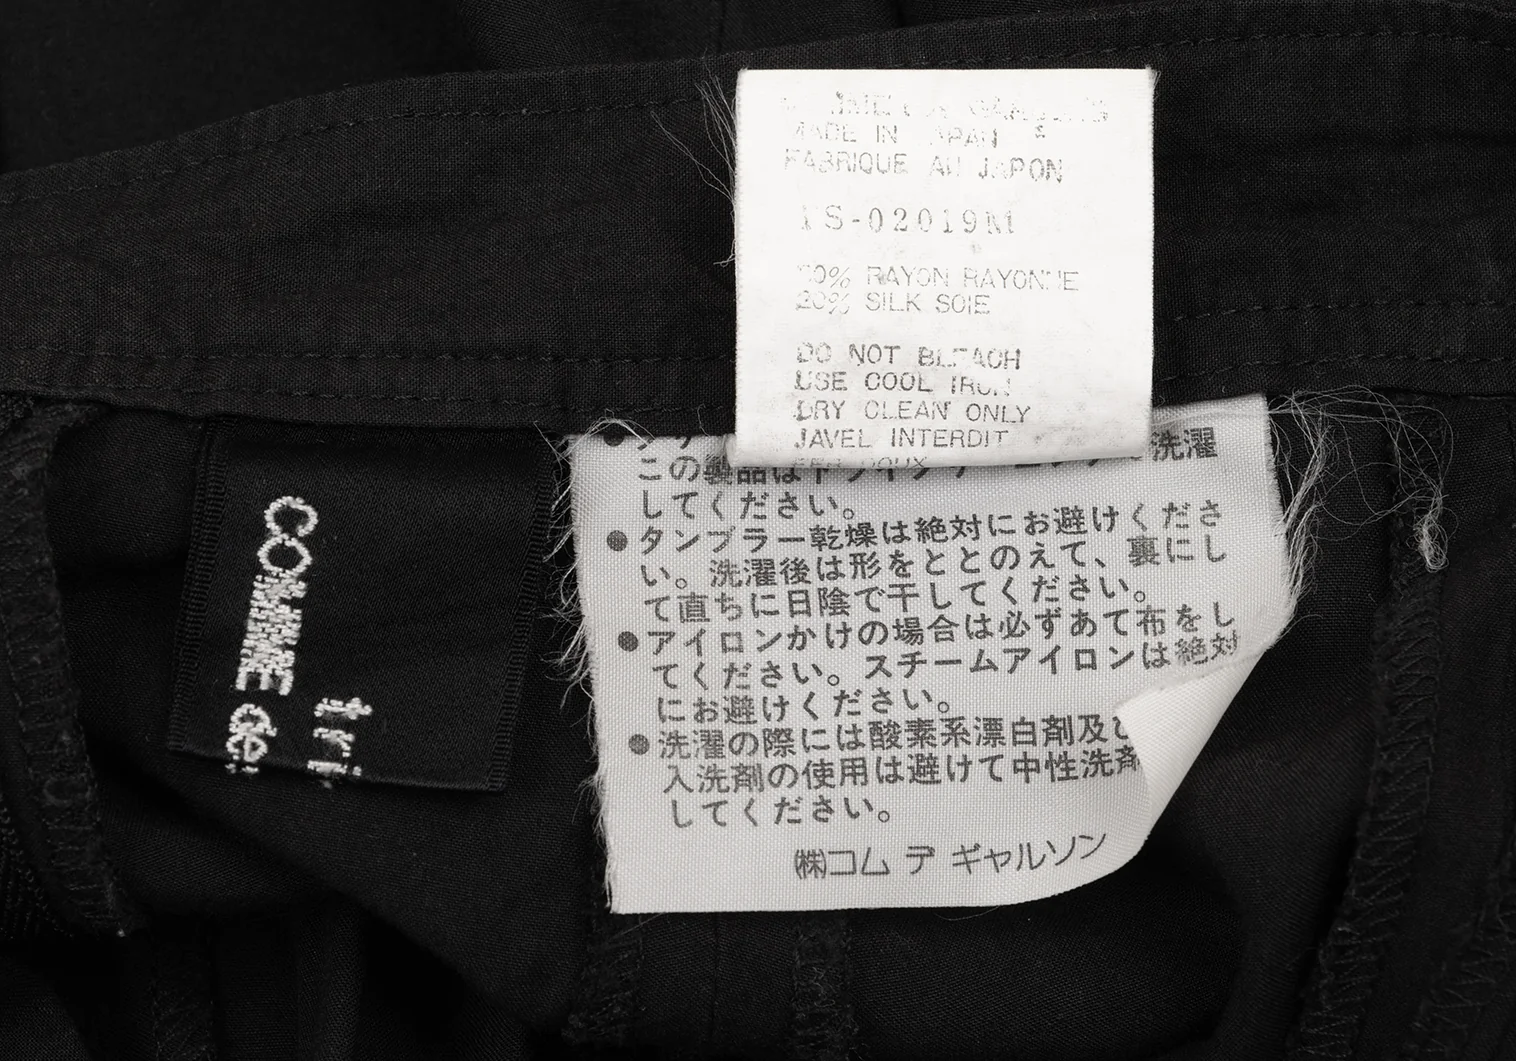 MADE IN JAPAN
FABRIQUE AU JAPON
S-02019M
% RAYON RAYONNE
20% SILK SOIE
DO NOT BLEACH
USE COOL IRON
DRY CLEAN ONLY
JAVEL INTERDIT
COMME de
tri
この製品はドライクリーニングで洗濯
してください。
●タンブラー乾燥は絶対にお避けくださ
い。洗濯後は形をととのえて、裏にし
て直ちに日陰で干してください。
●アイロンかけの場合は必ずあて布をし
てください。スチームアイロンは絶対
にお避けください。
●洗濯の際には酸素系漂白剤及び
入洗剤の使用は避けて中性洗剤
してください。
㈱コム デ ギャルソン